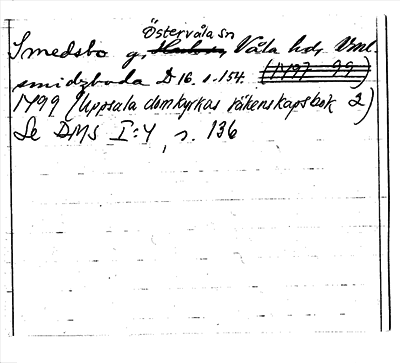 Östervåla sn
Smedsbo g, Våla hd, Vml.
smidzboda D 16. s. 154. (1497-99)
1499 (Uppsala domkyrkas räkenskapsbok 2)
Se DMS I:4, s. 136